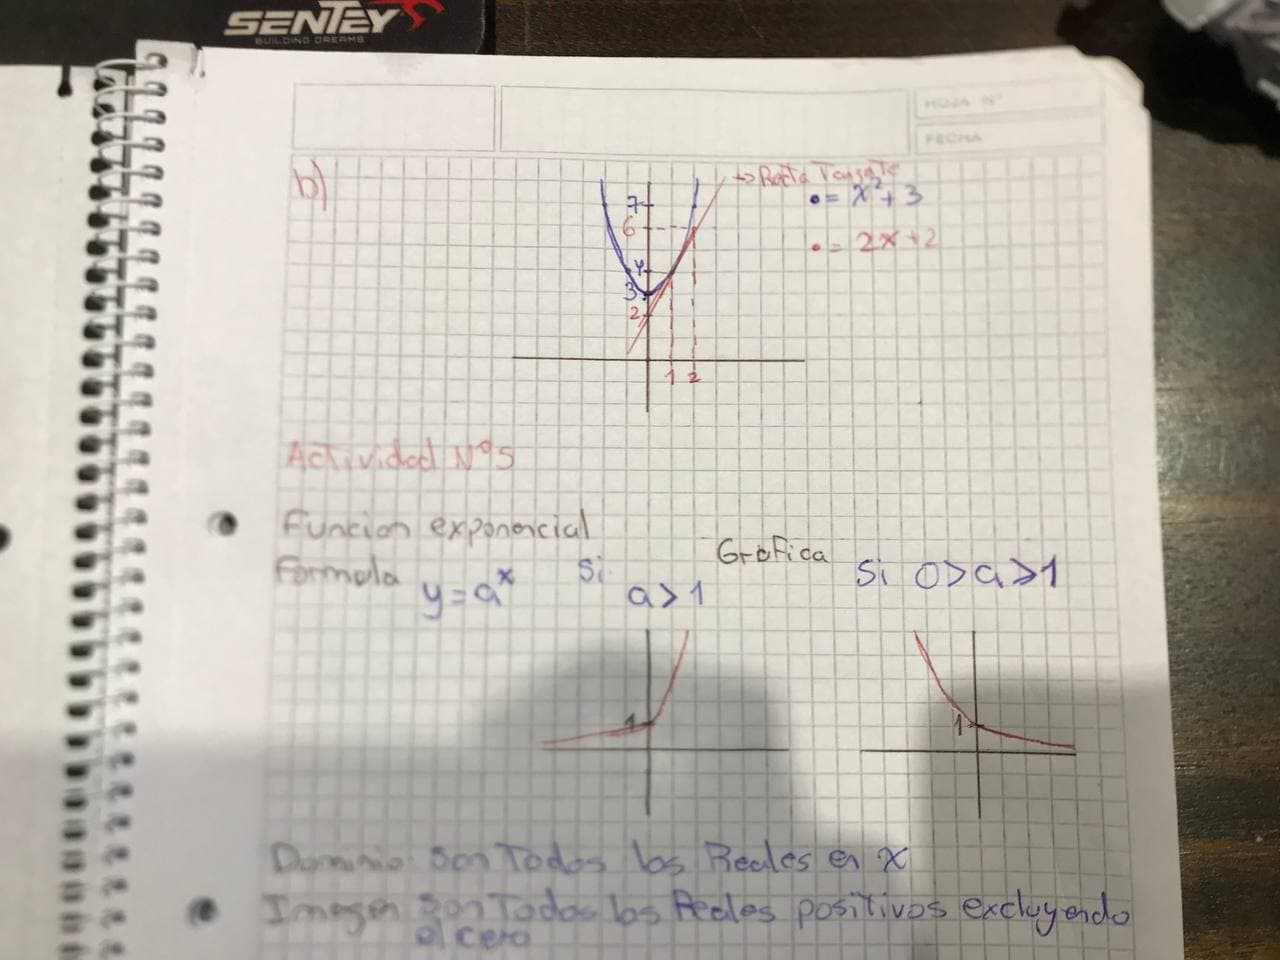 SENTEY
BUILDING DREAMS
HOJA N°
FECHA
b)
→ Recta Tangente
• = x² + 3
• = 2x+2
7
6
4
3
2
1 2
Actividad N°5
Funcion exponencial
Formula y = aˣ
Grafica
Si a > 1
Si 0 > a ⩾ 1
1
1
Dominio: Son Todos los Reales en x
Imagen Son Todos los Reales positivos excluyendo
el cero